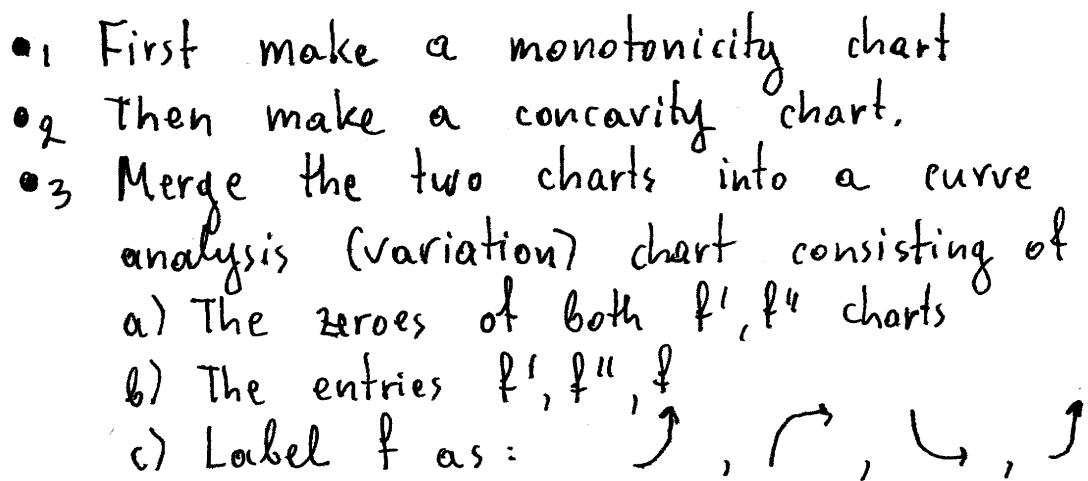 •1 First make a monotonicity chart
•2 Then make a concavity chart.
•3 Merge the two charts into a curve
analysis (variation) chart consisting of
a) The zeroes of both f', f" charts
b) The entries f', f", f
c) Label f as: ⤴, ↱, ↳, ⤴